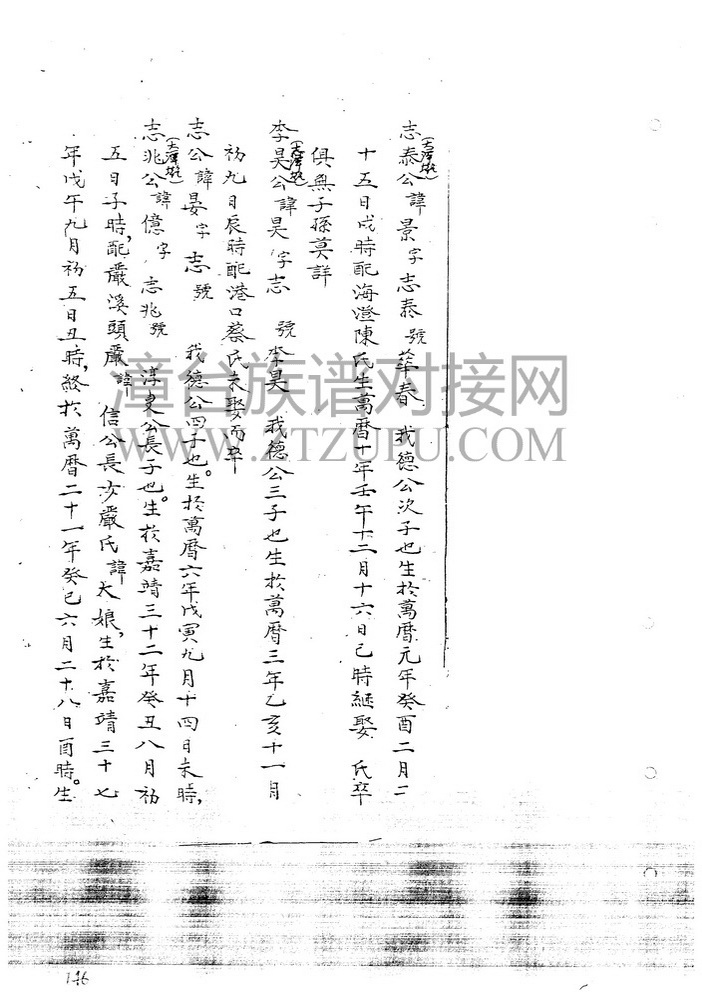 志泰公諱景字志泰號華春我德公次子也生於萬曆元年癸酉二月二
十五日戌時配海澄陳氏生萬曆十年壬午十二月十六日巳時継娶 氏卒
俱無子孫莫詳
李昊公諱昊字志 號李昊我德公三子也生於萬曆三年乙亥十一月
初九日辰時配港口蔡氏未娶而卒
志公諱晏字志 號 我德公四子也。生於萬曆六年戊寅九月十四日未時,
志兆公諱億字志兆號 淳 公長子也。生於嘉靖三十二年癸丑八月初
五日子時,配嚴溪頭嚴諱信公長女嚴氏諱大娘,生於嘉靖三十七
年戊午九月初五日丑時,終於萬曆二十一年癸巳六月二十八日酉時。生
漳台族谱对接网
WWW.ZTZUPU.COM
146